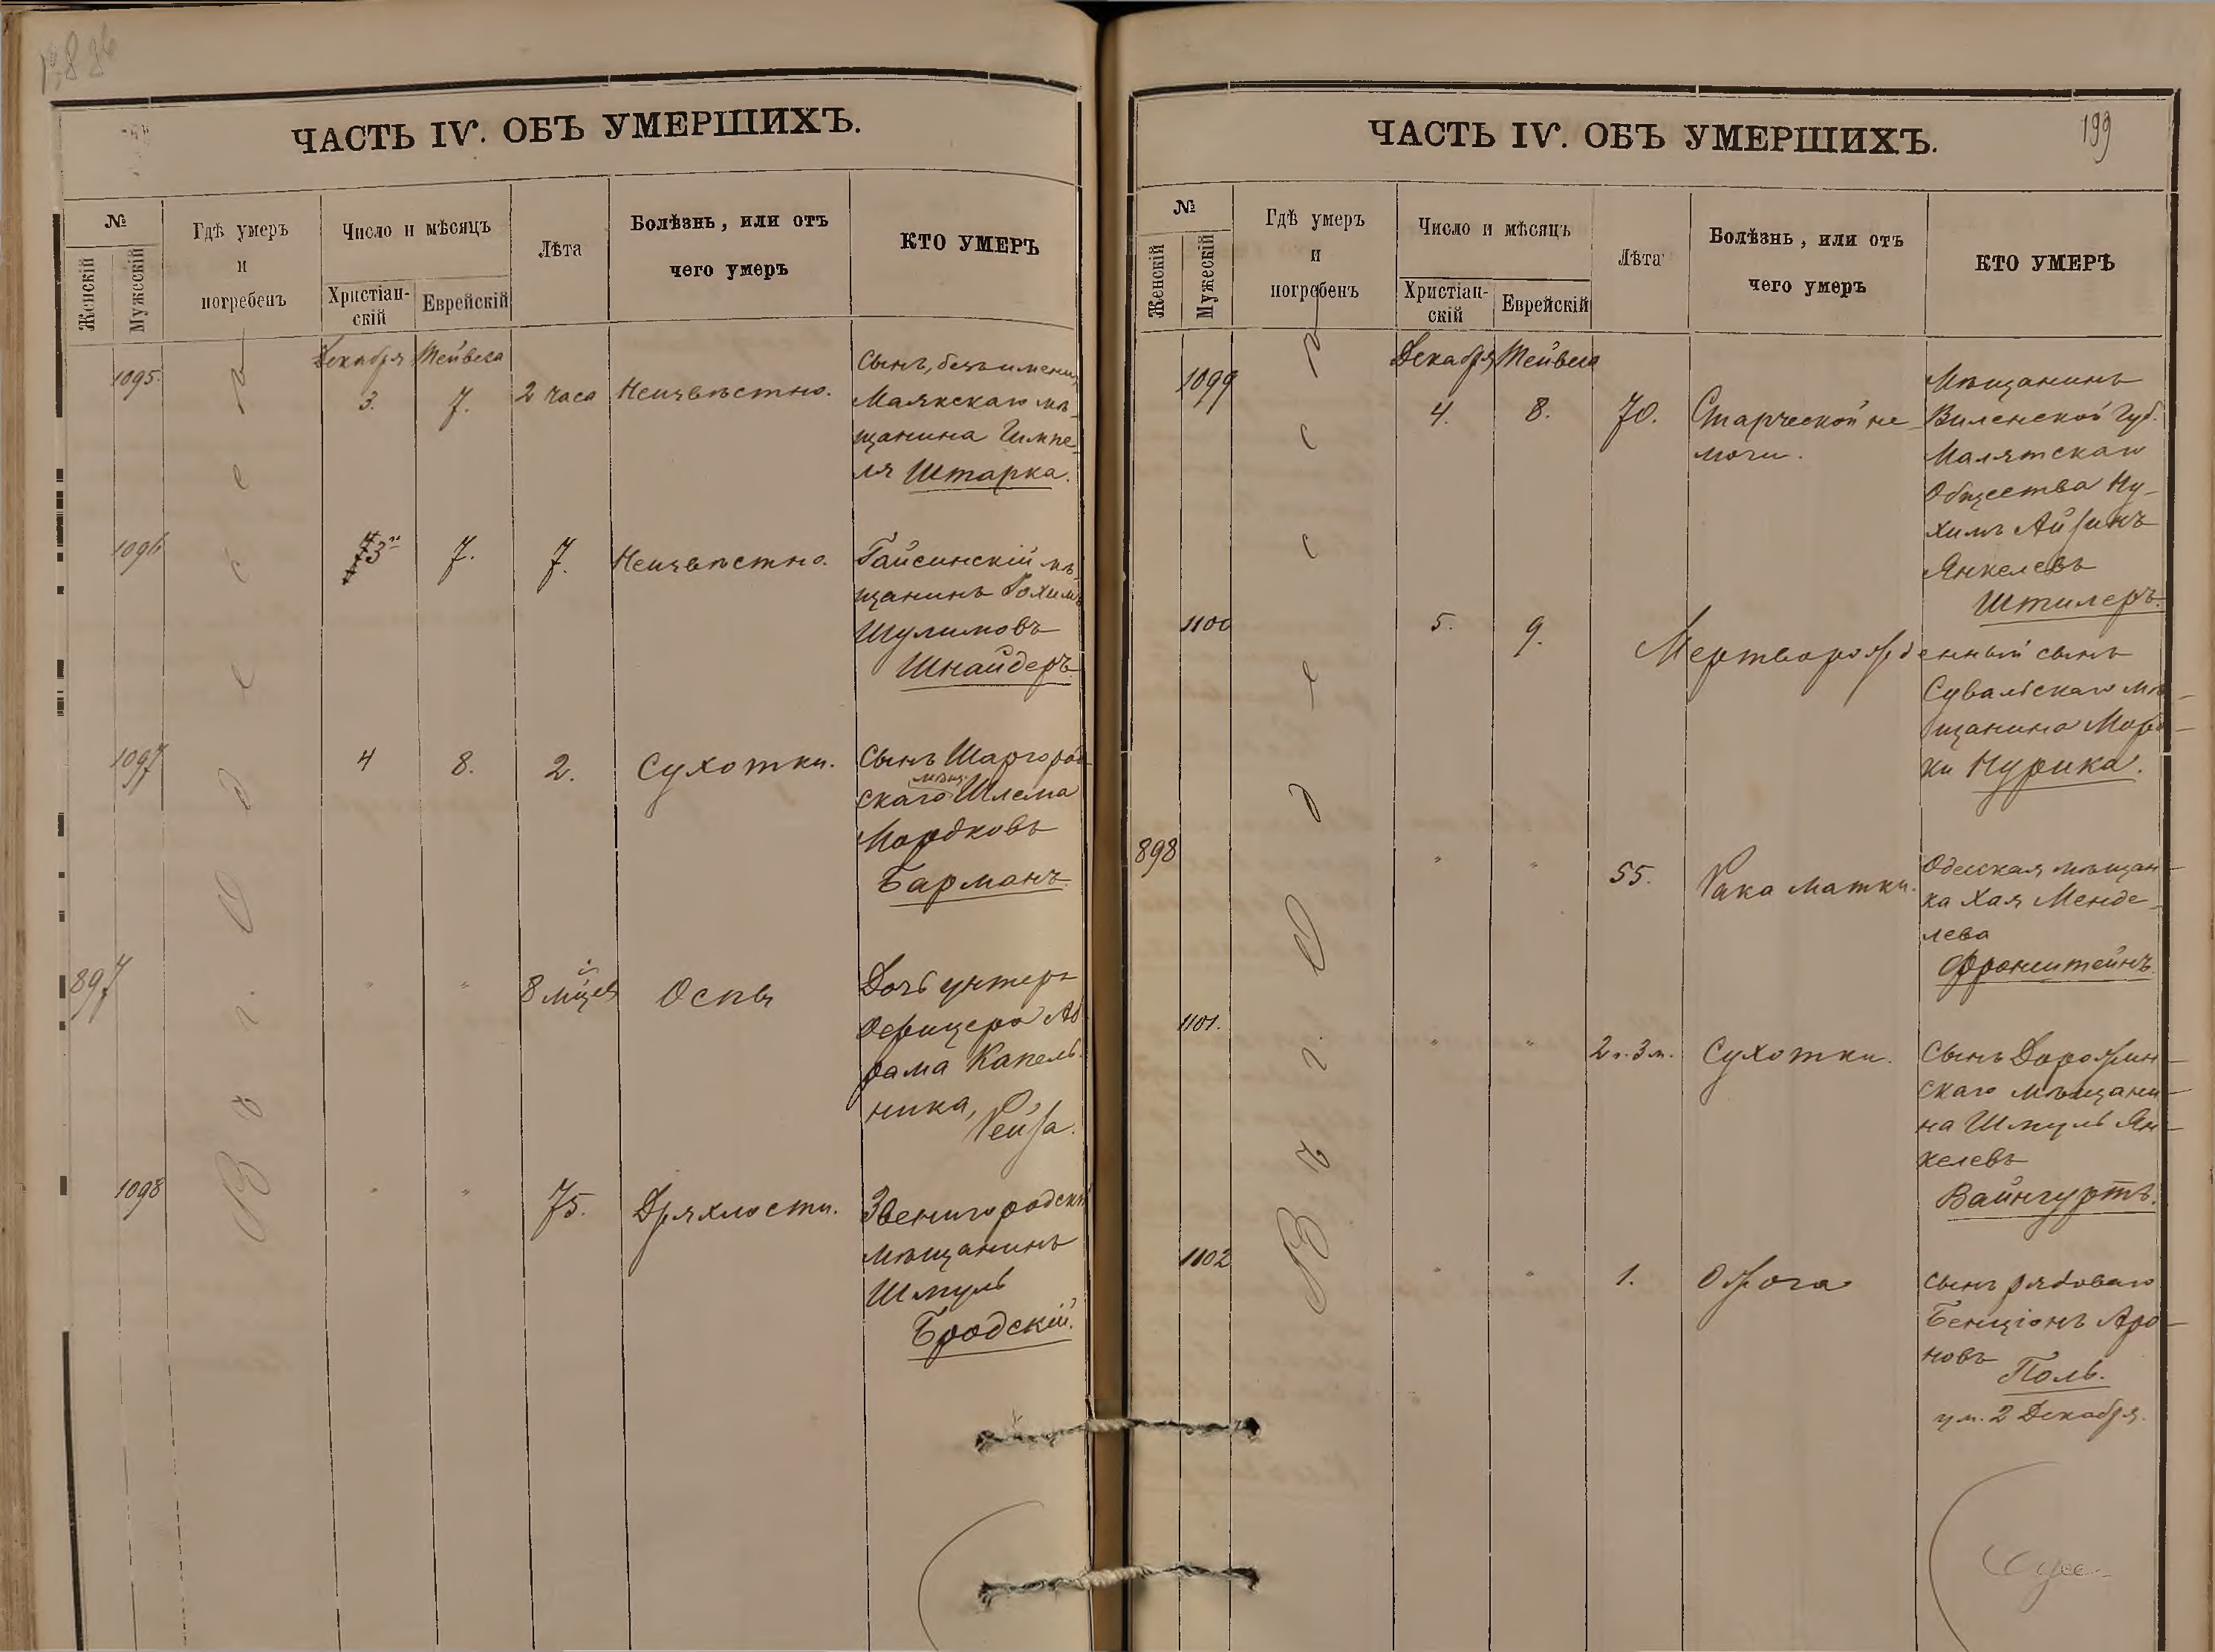 ЧАСТЬ IV. ОБЪ УМЕРШИХЪ.
№
Женскій
Мужескій
Гдѣ умеръ
и
погребенъ
Число и мѣсяцъ
Христіан-
скій
Еврейскій
Лѣта
Болѣзнь, или отъ
чего умеръ
КТО УМЕРЪ
Въ г. Одессѣ
1095.
Декабря
3.
Тейвеса
7.
2 часа
Неизвѣстно.
Сынъ, безъ имени,
Маякскаго мѣ-
щанина Гимпе-
ля Штарка.
1096
3
7.
7.
Неизвѣстно.
Гайсинскій мѣ-
щанинъ
Шулимовъ
Шнайдеръ.
1097
4
8.
2.
Сухотки.
Сынъ Шаргород-
мѣщ.
скаго Шлема
Мордковъ
Барманъ.
897
"
"
8 мѣсъ
Оспы
Дочь унтеръ
Офицера Аб-
рама Капель-
ника, Рейза.
1098
"
"
75.
Дряхлости.
Звенигородскій
мѣщанинъ
Шмуль
Бродскій.
ЧАСТЬ IV. ОБЪ УМЕРШИХЪ.
199
№
Женскій
Мужескій
Гдѣ умеръ
и
погребенъ
Число и мѣсяцъ
Христіан-
скій
Еврейскій
Лѣта
Болѣзнь, или отъ
чего умеръ
КТО УМЕРЪ
Въ г. Одессѣ
1099
Декабря
4.
Тейвеса
8.
70.
Старческой не-
мочи.
Мѣщанинъ
Виленской Губ.
Малятскаго
Общества Ну-
химъ Айзикъ
Янкелевъ
Штилеръ.
1100
5.
9.
Мертворожденный сынъ
Сувалскаго мѣ-
щанина Морд-
ки Нурика.
898
"
"
55.
Рака матки.
Одесская мѣщан-
ка Хая Менде-
лева
Фронштейнъ.
1101.
"
"
2 г. 3 м.
Сухотки.
Сынъ Дорожин-
скаго мѣщани-
на Шмуль Ян-
келевъ
Вайнгуртъ.
1102
"
"
1.
Ожога
Сынъ рядоваго
Бенціонъ Аро-
новъ
Поль.
ум. 2 Декабря.